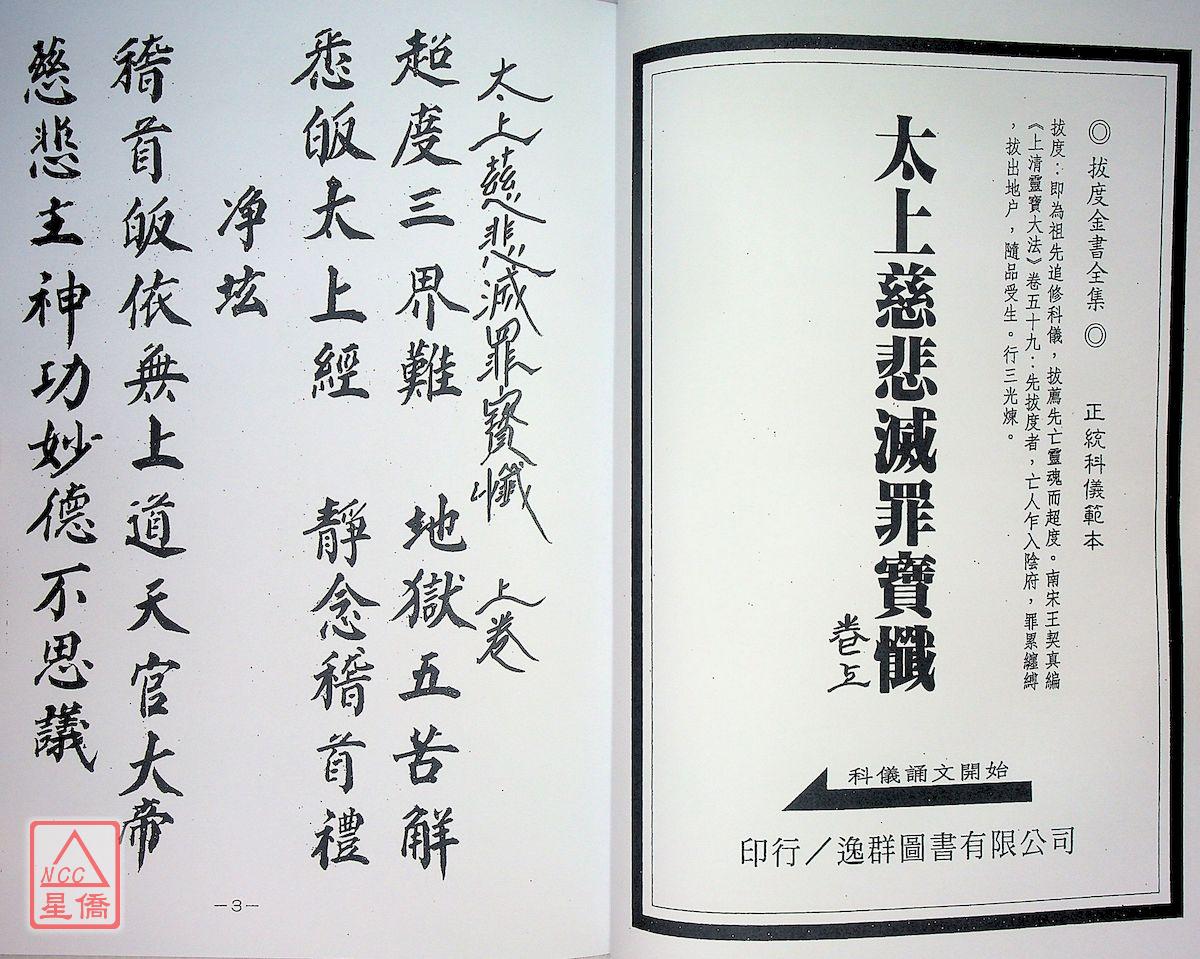 ◎ 拔度金書全集 ◎ 正統科儀範本
拔度：即為祖先追修科儀，拔薦先亡靈魂而超度。南宋王契真編
《上清靈寶大法》卷五十九：先拔度者，亡人乍入陰府，罪累纏縛
，拔出地户，隨品受生。行三光煉。
太上慈悲滅罪寶懺
卷上
科儀誦文開始
印行／逸群圖書有限公司
太上慈悲滅罪寳懺 上卷
超度三界難 地獄五苦解
悉皈太上經 靜念稽首禮
净坛
稽首皈依無上道天官大帝
慈悲主神功妙德不思議
－3－
NCC
星僑